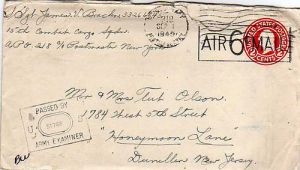 Sgt James V. Bracken
15th Combat Cargo Sqdn
APO 218 c/o Postmaster New York
1945
AIR 6¢ MAIL
UNITED STATES POSTAGE
CENTS
PASSED BY
U.S.
ARMY EXAMINER
Mr & Mrs Tut Olson
1784 West 5th Street
"Honeymoon Lane
Dunellen New Jersey.